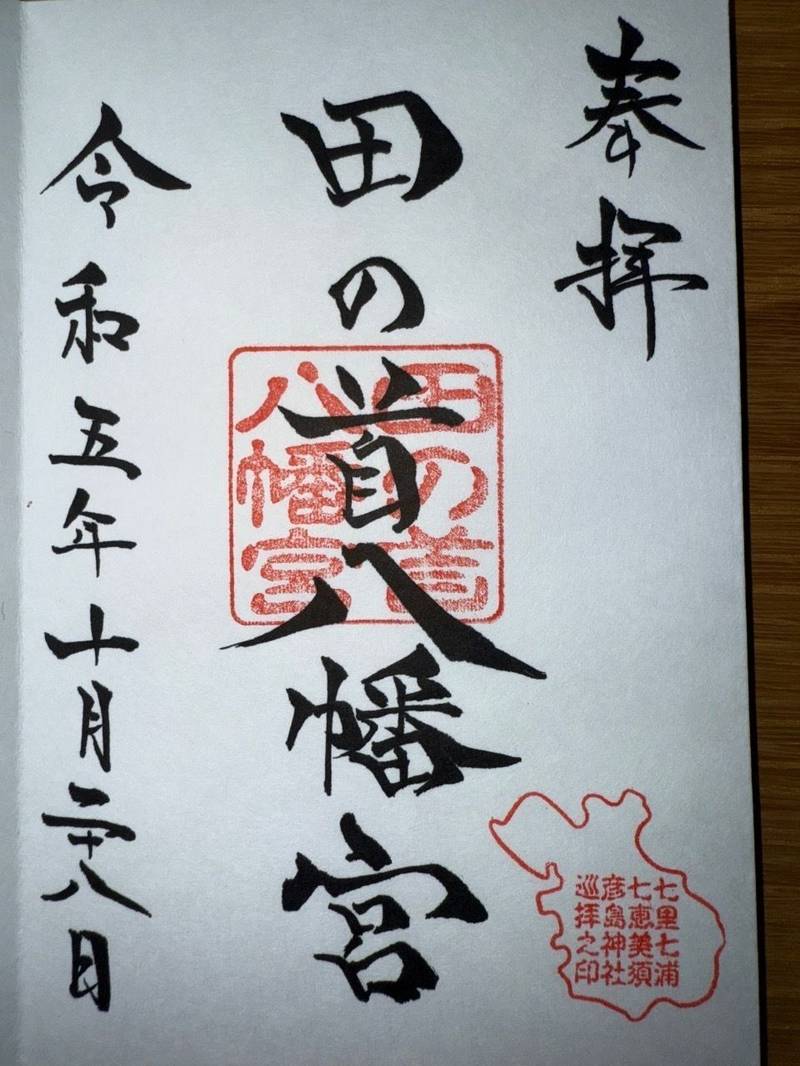 奉拝
田の首八幡宮
田の首
八幡宮
令和五年十月二十八日
七里七浦
七恵美須
彦島神社
巡拝之印